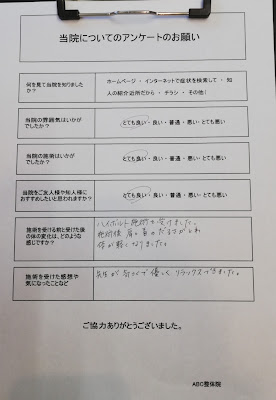 当院についてのアンケートのお願い
何を見て当院を知りました
か？
ホームページ ・ インターネットで症状を検索して ・ 知
人の紹介近所だから ・ チラシ ・ その他(
当院の雰囲気はいかが
でしたか？
とても良い ・ 良い ・ 普通 ・ 悪い・とても悪い
当院の施術はいかが
でしたか？
とても良い ・ 良い ・ 普通 ・ 悪い・とても悪い
当院をご友人様や知人様に
おすすめしたいと思われますか？
とても良い ・ 良い ・ 普通 ・ 悪い・とても悪い
施術を受ける前と受けた後
の体の変化は、どのような
感じですか？
ハイボルト施術を受けました。
施術後 肩、首のだるさがとれ
体が軽くなりました。
施術を受けた感想や
気になったことなど
先生が で優しく リラックスできました。
ご協力ありがとうございました。
ABC整体院